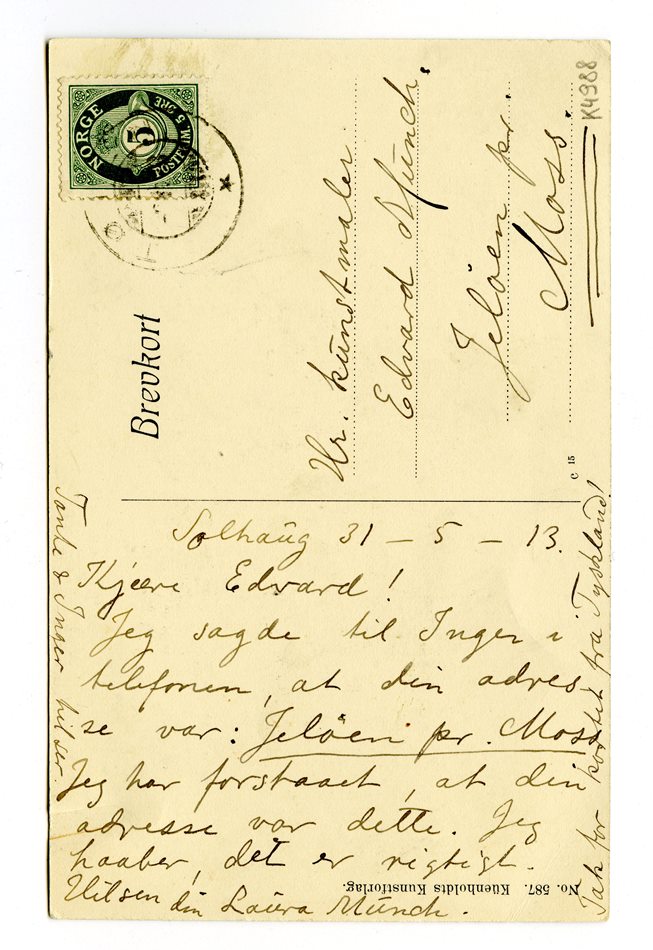 NORGE
POSTFRIM. 5 ØRE
5
K4988
Brevkort
Hr. kunstmaler
Edvard Munch.
Jeløen pr.
Moss.
C 15
Solhaug 31 – 5 – 13.
Kjære Edvard!
Jeg sagde til Inger i
telefonen, at din adres
se var: Jeløen pr. Moss
Jeg har forstaaet, at din
adresse var dette. Jeg
haaber, det er rigtigt.
Hilsen din Laura Munch.
Tante & Inger hilser.
Tak for kortet fra Tyskland!
No. 587. Küenholdts Kunstforlag.